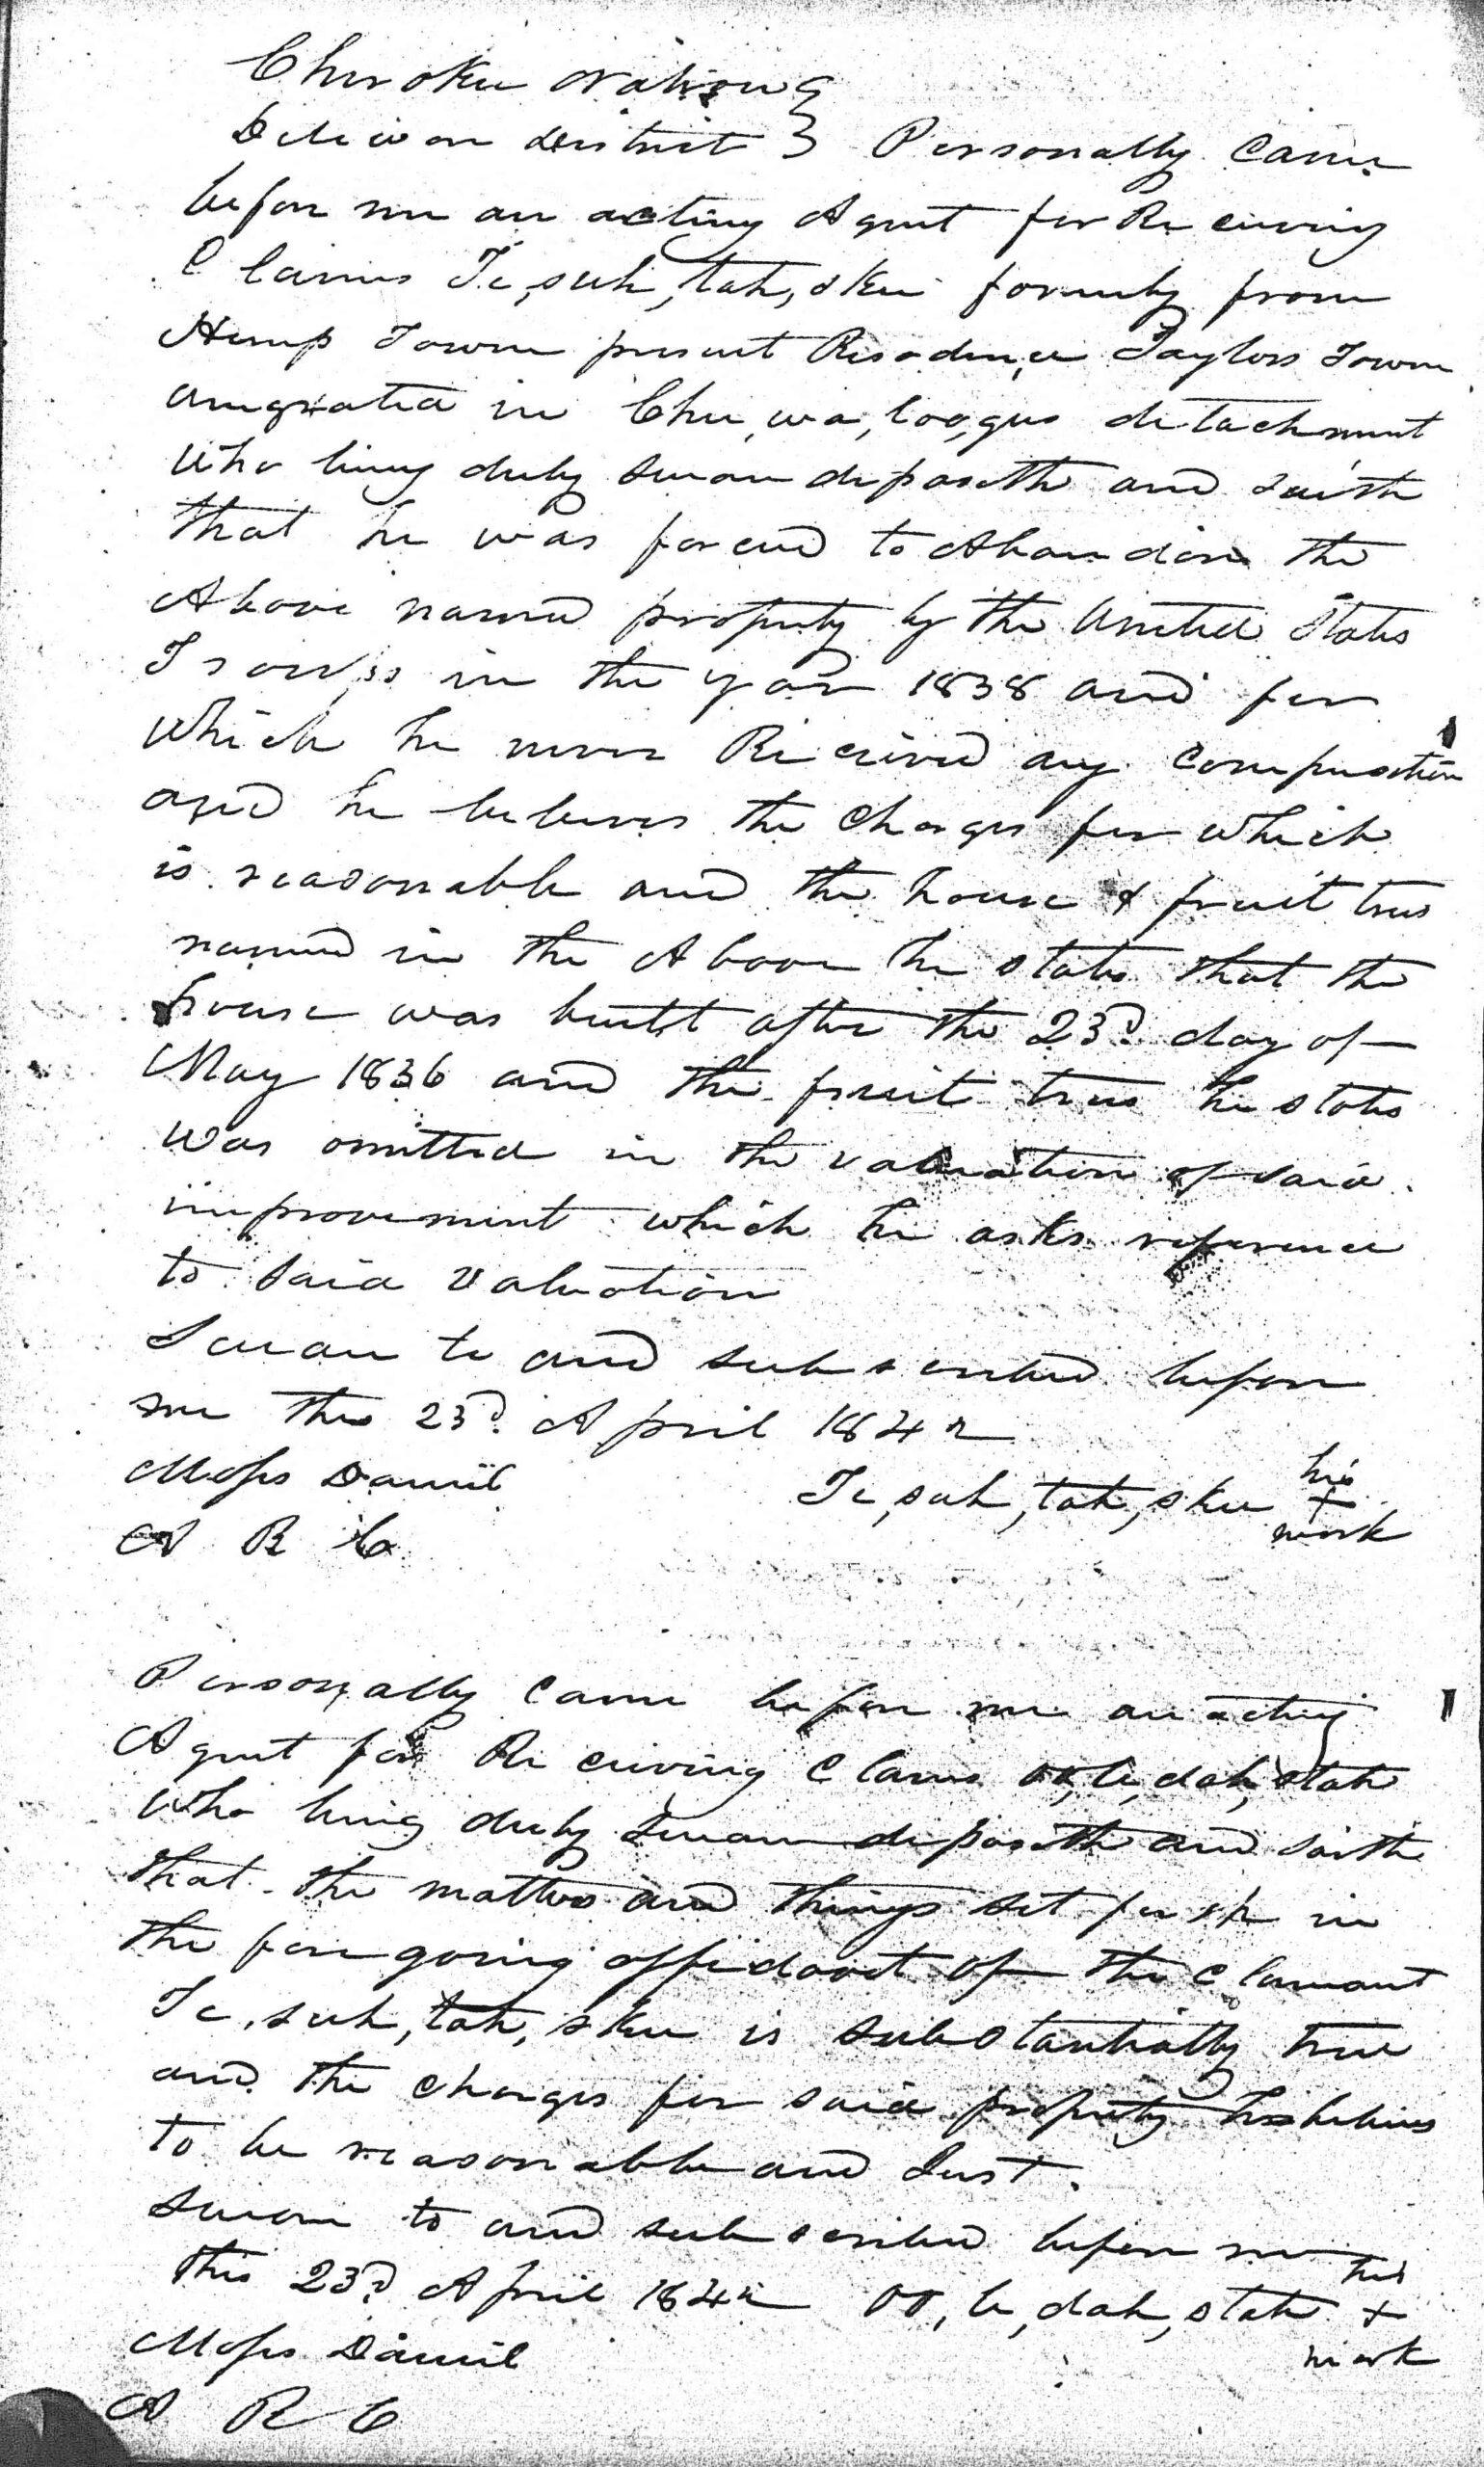 Cherokee Nation }
Deleware District } Personally Came
before me an acting Agent for Receiving
Claims Te,suh,tah,skee formerly from
Hemp Town present Residence Taylors Town
emigrated in Chu,wa,loo,gus detachment
Who being duly sworn deposeth and saith
that he was forced to Abandon the
Above named property by the United States
Troops in the year 1838 and for
Which he never Received any compensation
and he believes the Charges for which
is reasonable and the house & fruit trees
named in the Above he states that the
house was built after the 23d day of
May 1836 and the fruit trees he states
was omitted in the valuation of said
improvement which he asks reference
to said valuation
Sworn to and subscribed before
me this 23d April 1842
Moses Daniel Te,suh,tah,skee his + mark
A R C
Personally Came before me an acting
Agent for Receiving Claims oo,le,dah,stah
Who being duly sworn deposeth and saith
that the matters and things set forth in
the foregoing affidavit of the Claimant
Te,suh,tah,skee is substantially true
and the charges for said property he believes
to be reasonable and Just.
Sworn to and subscribed before me
this 23d April 1842 oo,le,dah,stah his + mark
Moses Daniel
A R C